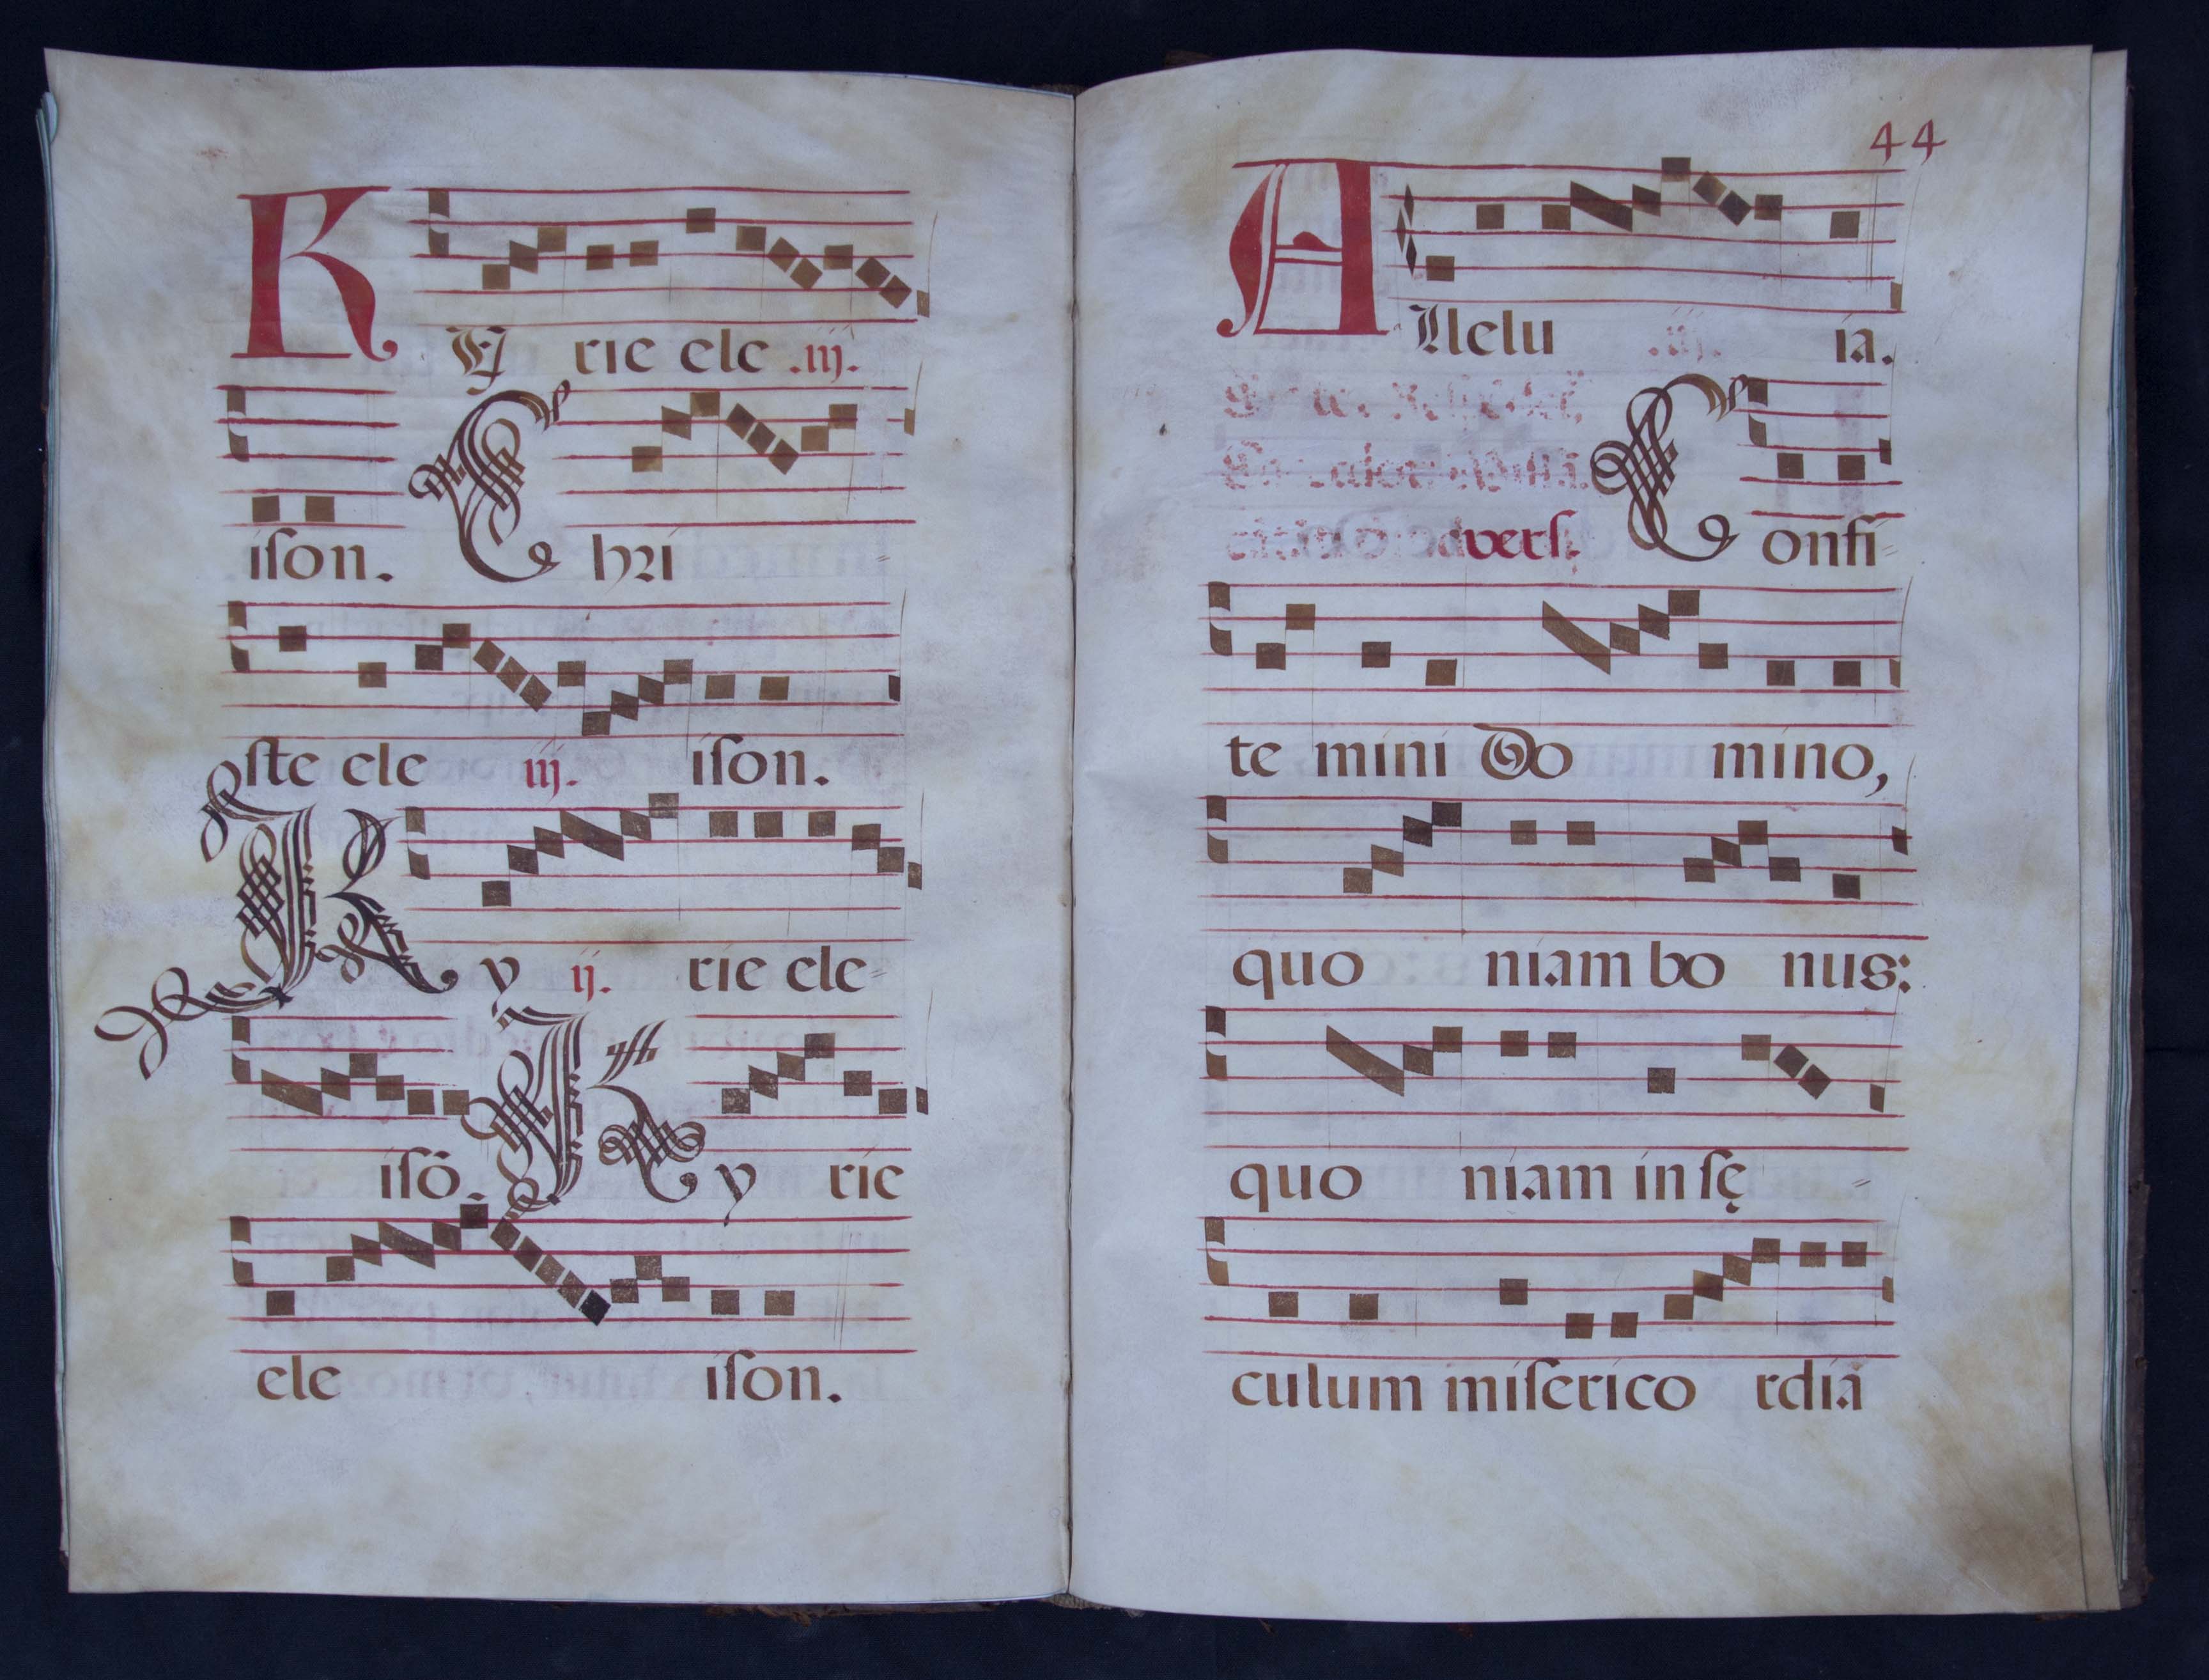 KY rie ele .iij.
ison. Chri
ste ele iij. ison.
Ky ij. rie ele-
isō. Ky rie
ele ison.
44
Allelu .iij. ia.
vers. Confi-
te mini Do mino,
quo niam bo nus:
quo niam in sę -
culum miserico rdiā